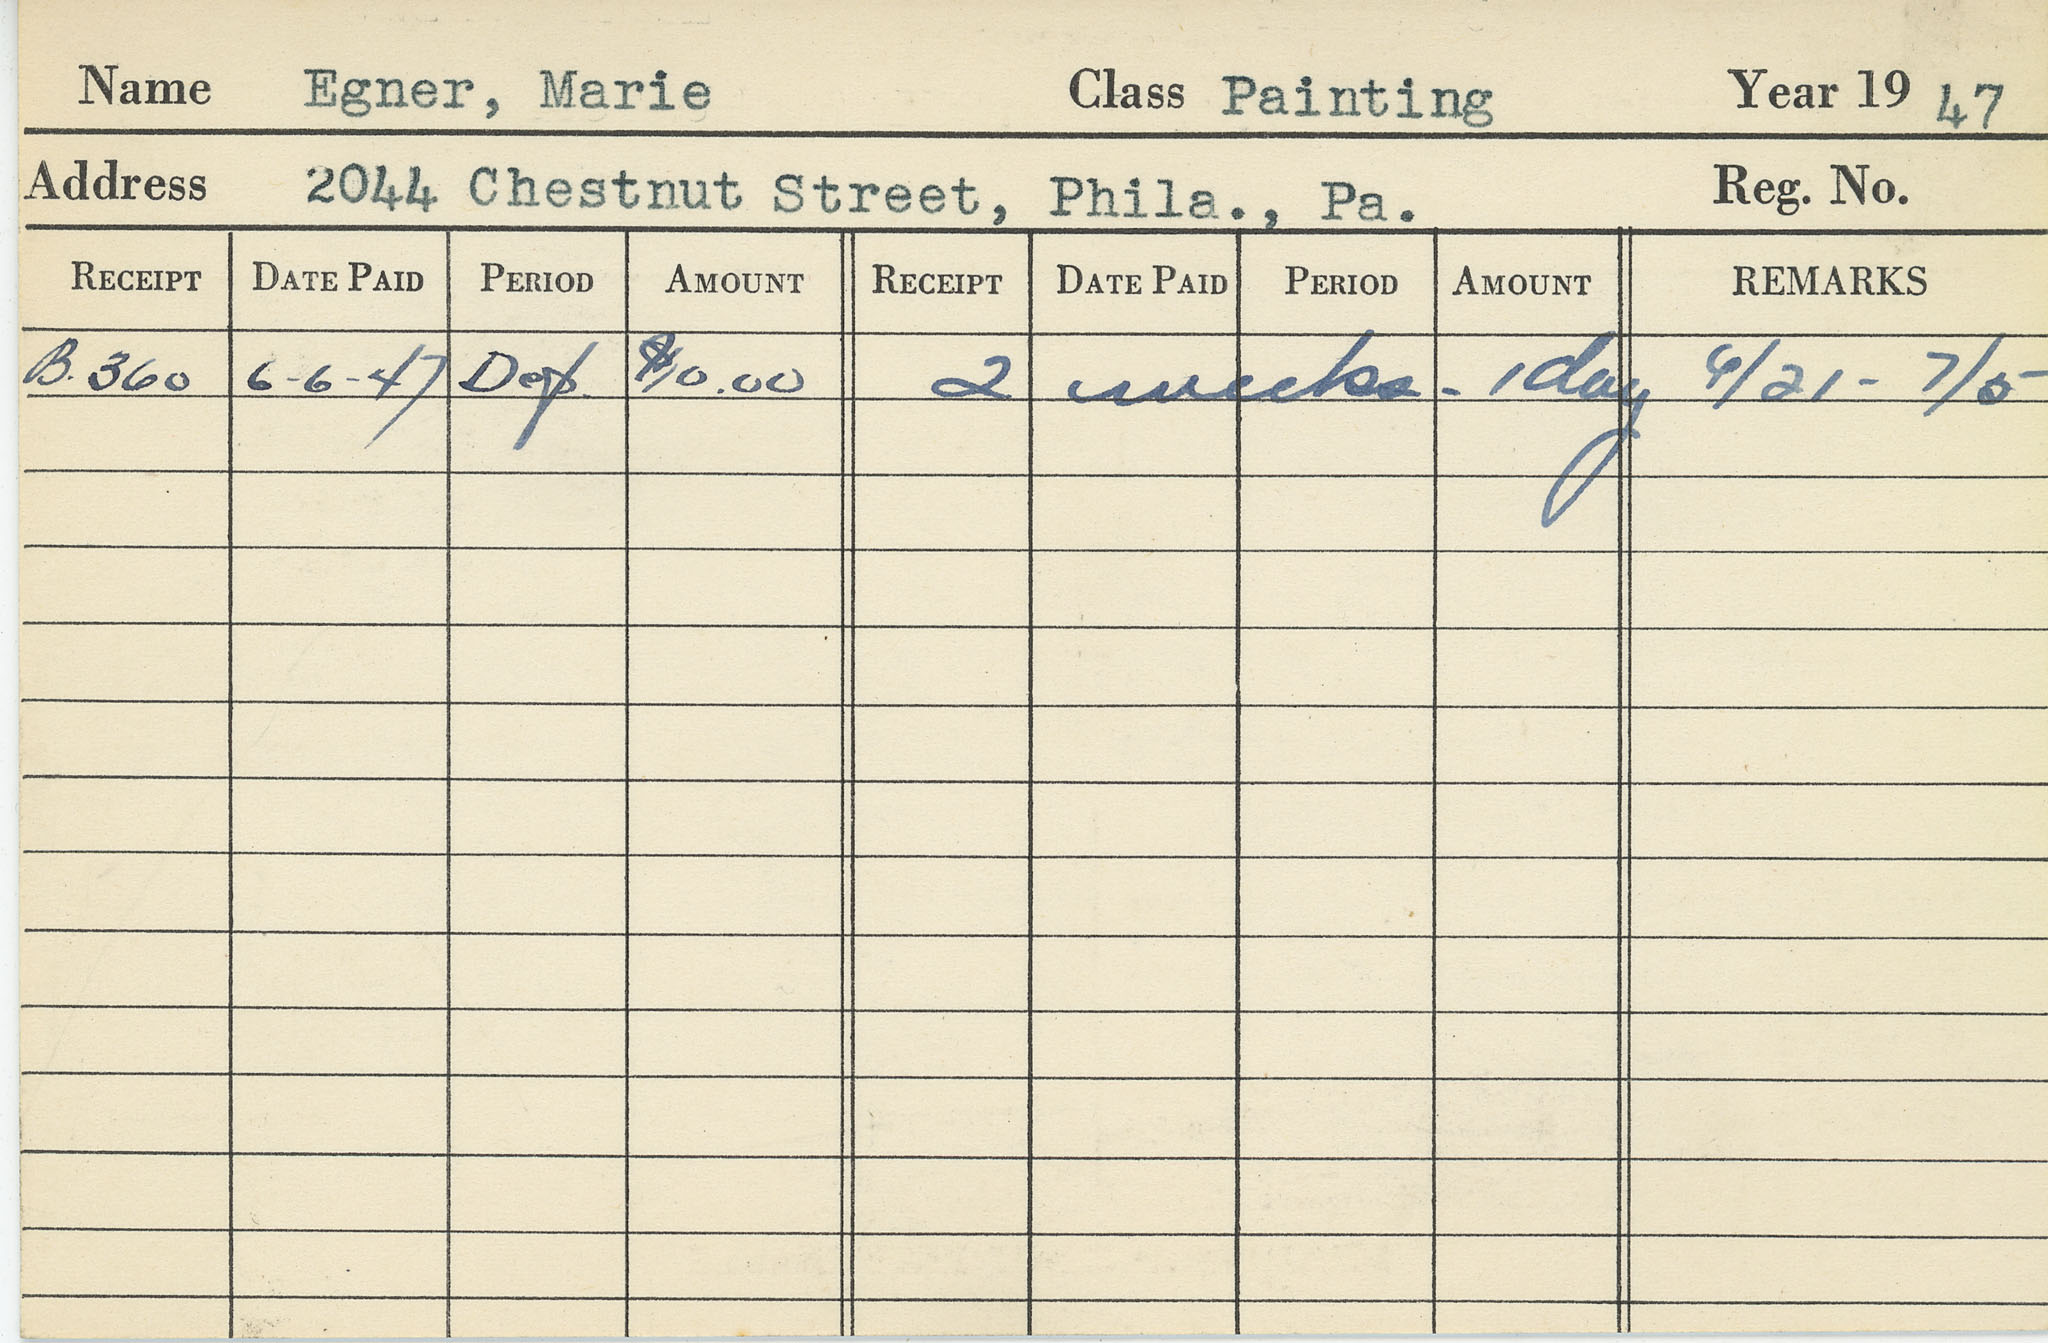 Name Egner, Marie Class Painting Year 19 47
Address 2044 Chestnut Street, Phila., Pa. Reg. No.
RECEIPT DATE PAID PERIOD AMOUNT RECEIPT DATE PAID PERIOD AMOUNT REMARKS
B.360 6-6-47 Dep. $10.00 2 weeks - 1 day 6/21 - 7/5